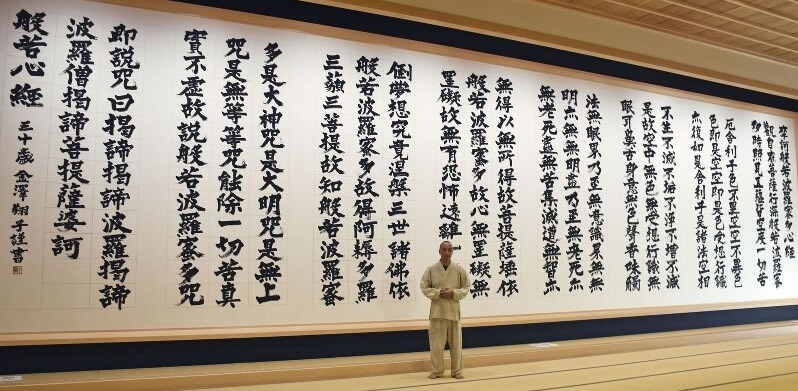 摩訶般若波羅蜜多心經
觀自在菩薩行深般若波羅蜜
多時照見五蘊皆空度一切苦
厄舎利子色不異空空不異色
色即是空空即是色受想行識
亦復如是舎利子是諸法空相
不生不滅不垢不浄不増不減
是故空中無色無受想行識無
眼耳鼻舌身意無色聲香味觸
法無眼界乃至無意識界無無
明亦無無明盡乃至無老死亦
無老死盡無苦集滅道無智亦
無得以無所得故菩提薩埵依
般若波羅蜜多故心無罣礙無
罣礙故無有恐怖遠離一
倒夢想究竟涅槃三世諸佛依
般若波羅蜜多故得阿耨多羅
三藐三菩提故知般若波羅蜜
多是大神咒是大明咒是無上
咒是無等等咒能除一切苦真
實不虚故説般若波羅蜜多咒
即説咒曰揭諦揭諦波羅揭諦
波羅僧揭諦菩提薩婆訶
般若心經
三十歳 金澤翔子謹書